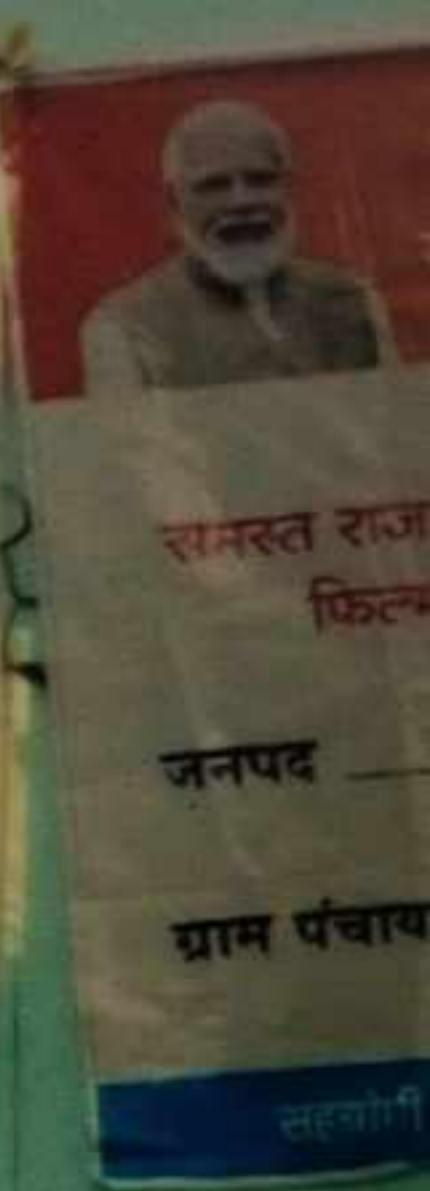 समस्त राज
फिल्म
जनपद
ग्राम पंचाय
सहयोगी